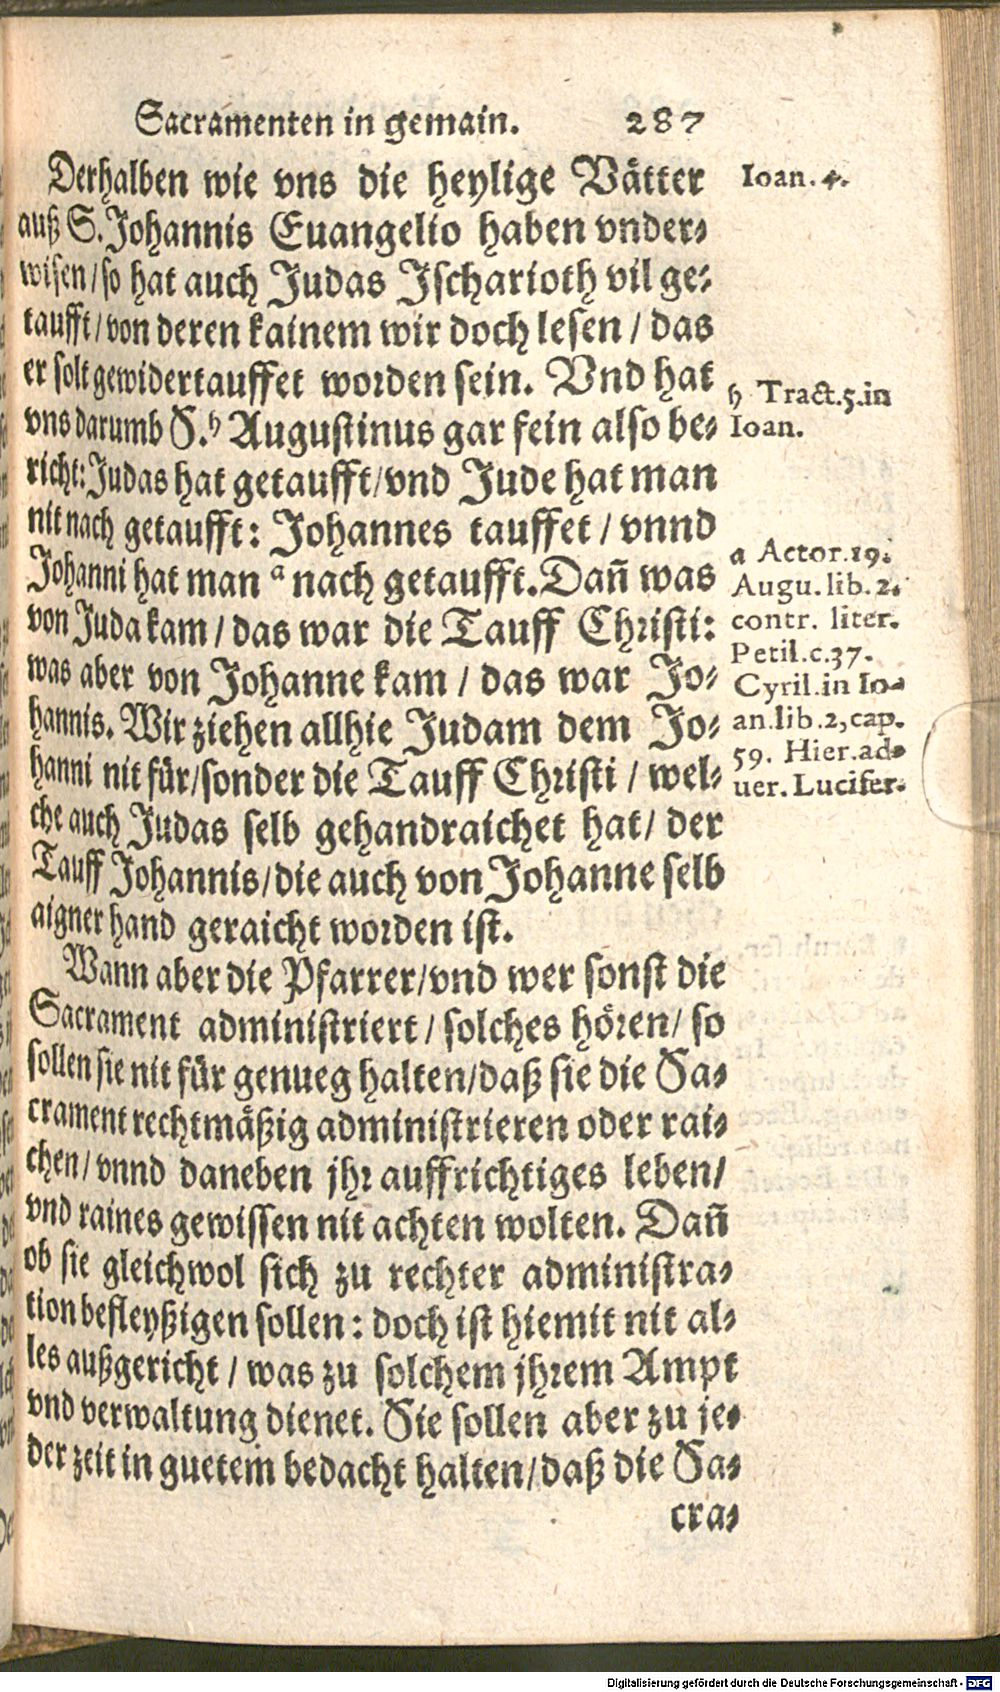 Sacramenten in gemain. 287
Derhalben wie vns die heylige Vätter
auß S. Johannis Euangelio haben vnder-
wisen/so hat auch Judas Jscharioth vil ge-
taufft/von deren kainem wir doch lesen/das
er solt gewidertauffet worden sein. Vnd hat
vns darumb S. h Augustinus gar fein also be-
richt: Judas hat getaufft/vnd Jude hat man
nit nach getaufft: Johannes tauffet/vnnd
Johanni hat man a nach getaufft. Dañ was
von Juda kam/das war die Tauff Christi:
was aber von Johanne kam/das war Jo-
hannis. Wir ziehen allhie Judam dem Jo-
hanni nit für/sonder die Tauff Christi/wel-
che auch Judas selb gehandraichet hat/der
Tauff Johannis/die auch von Johanne selb
aigner hand geraicht worden ist.
Wann aber die Pfarrer/vnd wer sonst die
Sacrament administriert/solches hören/so
sollen sie nit für genueg halten/daß sie die Sa-
crament rechtmäßig administrieren oder rai-
chen/vnnd daneben jhr auffrichtiges leben/
vnd raines gewissen nit achten wolten. Dañ
ob sie gleichwol sich zu rechter administra-
tion befleyßigen sollen: doch ist hiemit nit al-
les außgericht/was zu solchem jhrem Ampt
vnd verwaltung dienet. Sie sollen aber zu je-
der zeit in guetem bedacht halten/daß die Sa-
cra-
Ioan. 4.
h Tract.5.in
Ioan.
a Actor.19.
Augu.lib.2.
contr. liter.
Petil.c.37.
Cyril.in Io-
an.lib.2,cap.
59. Hier.ad-
uer. Lucifer.
Digitalisierung gefördert durch die Deutsche Forschungsgemeinschaft - DFG